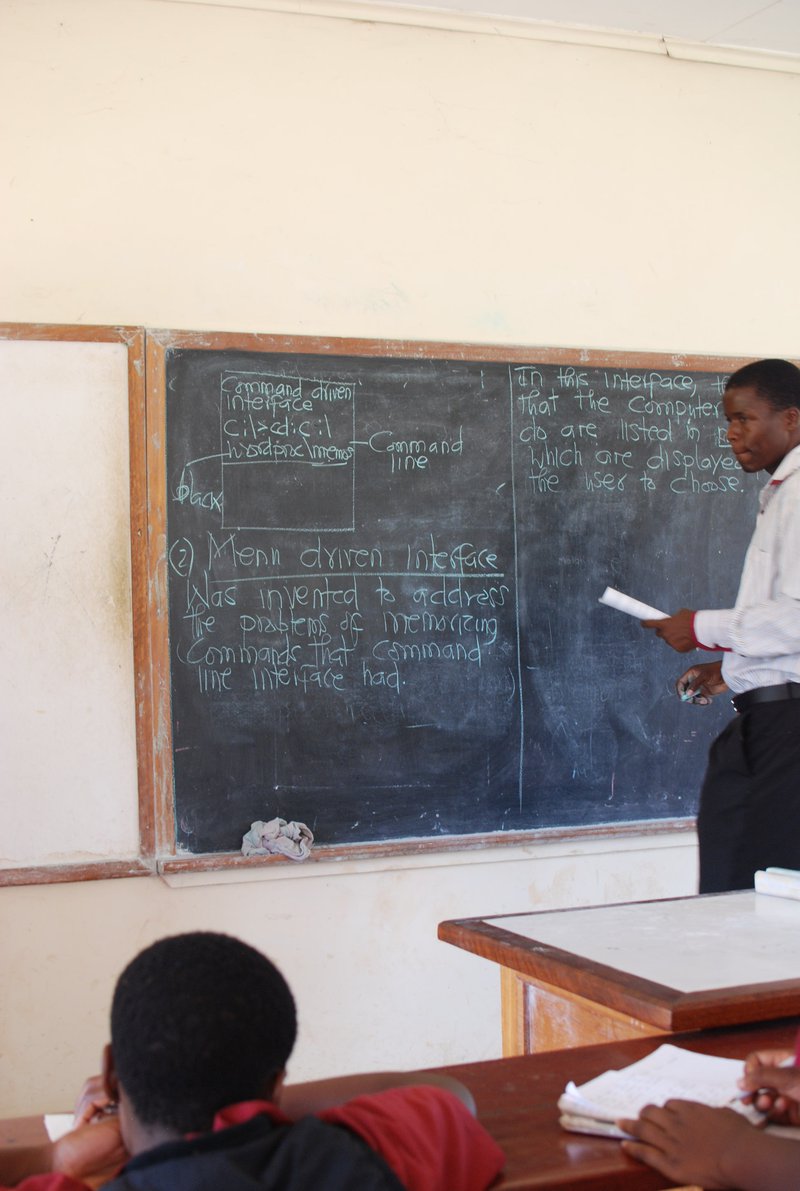 Command driven
interface
c:\>cd:c:\
Command
line
black
(2) Menu driven interface
Was invented to address
the problems of memorizing
Commands that command
line interface had.
In this interface,
that the computer
do are listed in
which are displayed
the user to choose.